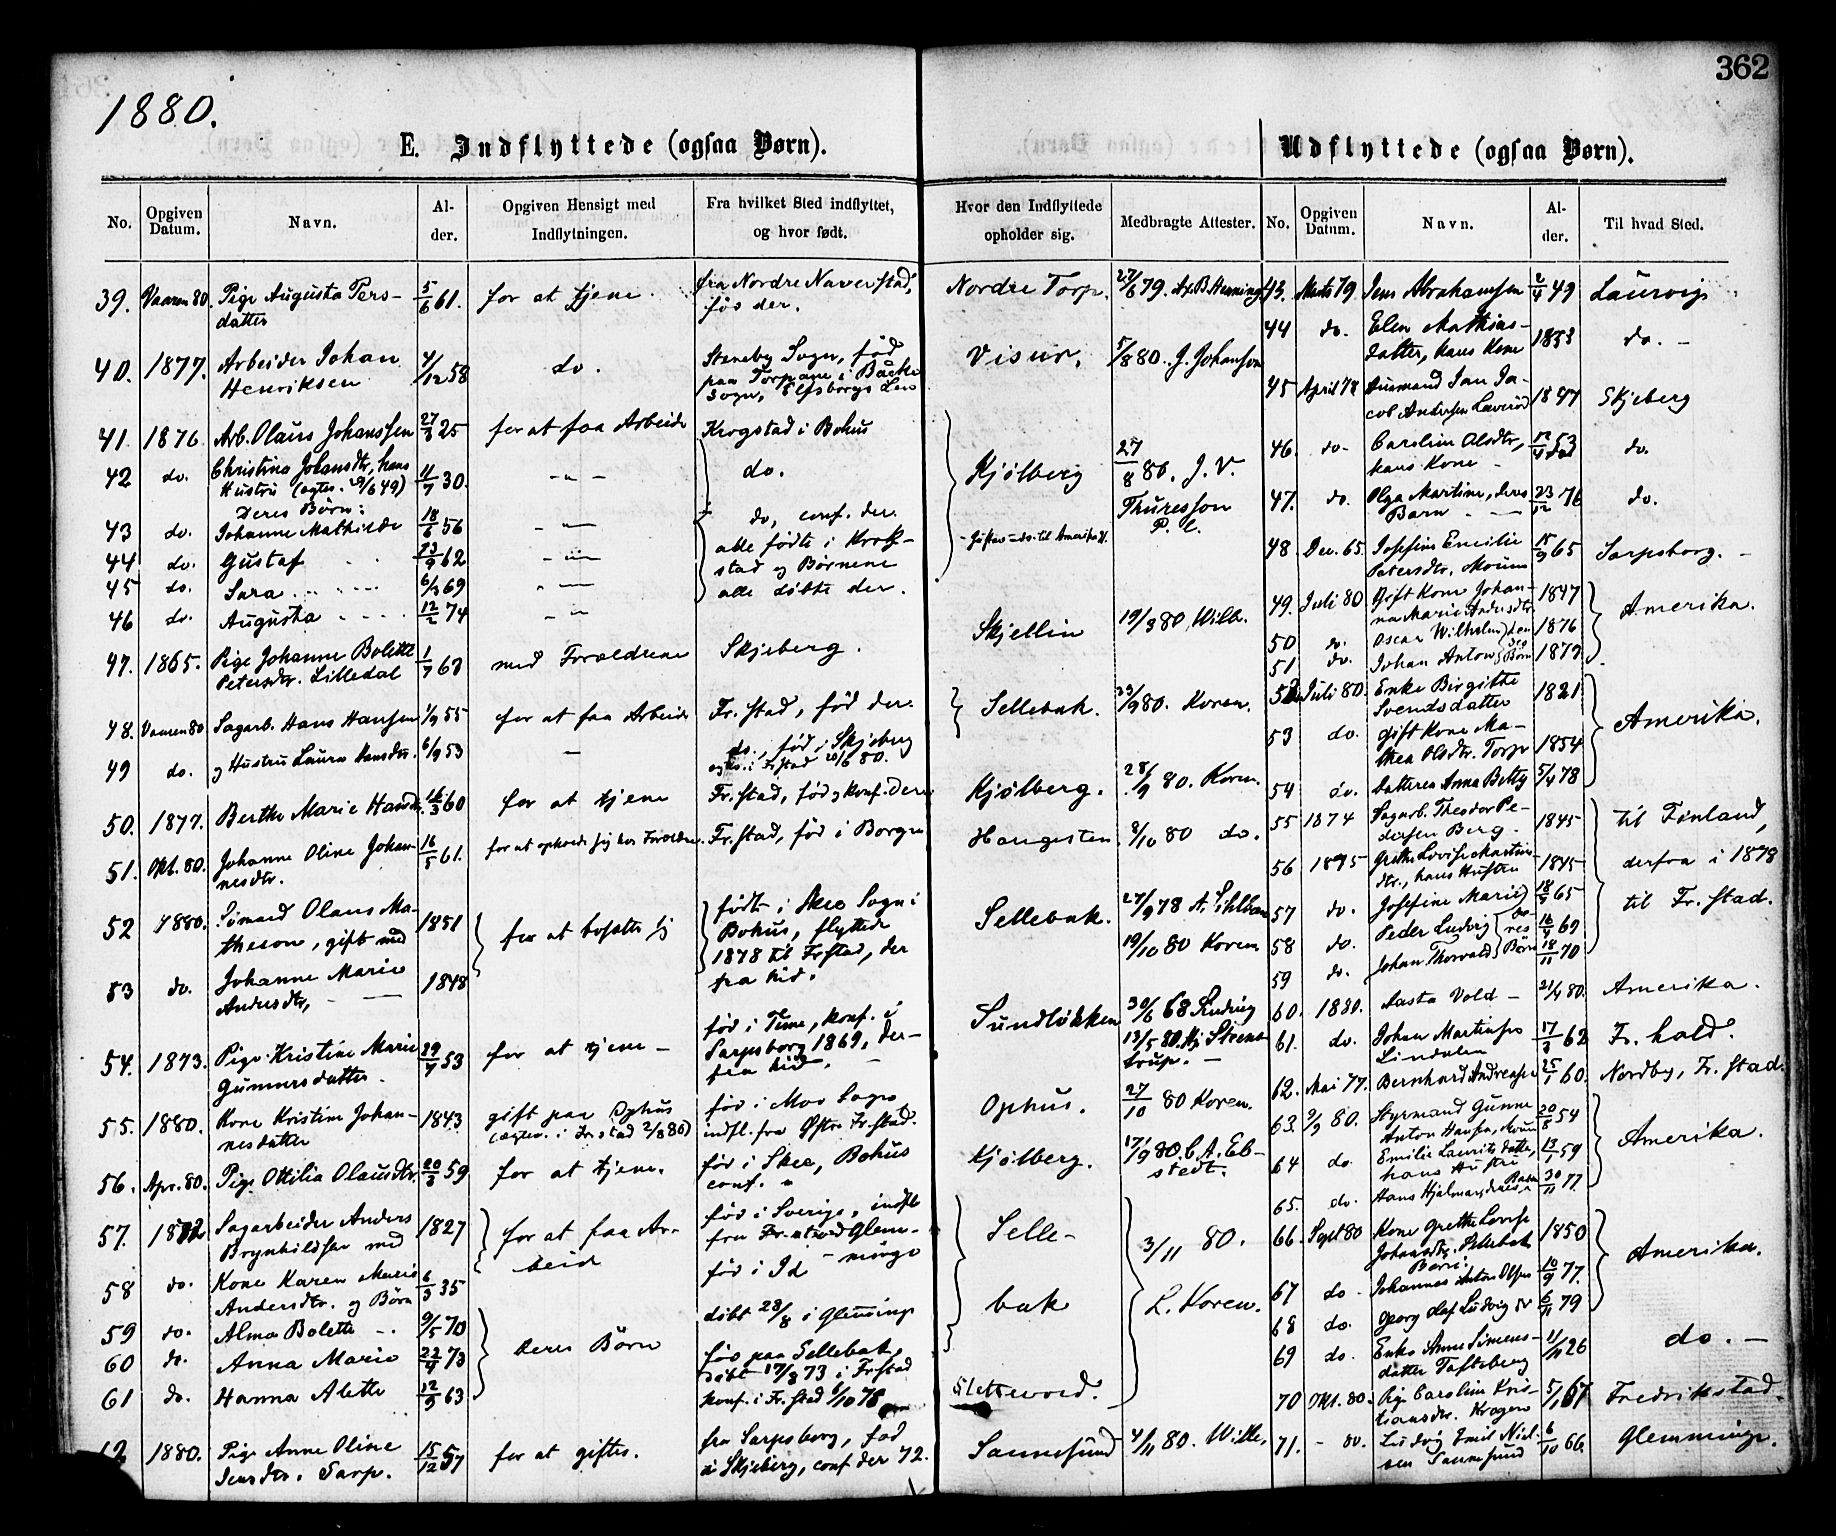 362
1880.
E. Indflyttede (ogsaa Børn).
No. Opgiven Datum. Navn. Alder. Opgiven Hensigt med Indflytningen. Fra hvilket Sted indflyttet, og hvor født. Hvor den Indflyttede opholder sig. Medbragte Attester.
39. Vaaren 80. Pige Augusta Pers- 5/6 61. for at tjene. fra Nordre Naverstad, Nordre Torp. 27/6 79.
datter fød der.
40. 1877. Arbeider Johan 4/12 58 do. Steneby Sogn, fød Visur. 5/8 80. J. Johanson
Henriksen paa Torpane i Bäcke
Sogn, Elfsborgs Län
41. 1876 Arb. Olaus Johanssen 27/3 25 for at faa Arbeide Krogstad i Bohus Kjølberg 27/8 80. J. V.
42 do. Christina Johansdtr, hans 11/7 30. - " - do. Thuresson
Hustru (ægtev. 49) P. C.
Deres Børn:
43 do. Johanne Mathilde 18/6 56 - " - do, conf. der.
44 do. Gustaf 23/9 62 - " - alle fødte i Krok-
45 do. Sara 69 - " - stad og Børnene
46 do. Augusta 12/2 74 - " - alle døbte der.
47. 1865. Pige Johanne Bolette med Forældrene Skjeberg. Skjellin 19/9 80 Wilh.
Petersdtr. Lilledal
48. Vaaren 80 Sagarb. Hans Hansen 1/9 55 for at faa Arbeide Fr.stad, fød der Sellebak. 23/9 80. Koren.
49 do. og Hustru Laura Hansdtr. 6/9 53 — do., fød i Skjeberg
ægtev. i Fr.stad 20/6 80.
50. 1877. Berthe Marie Hansdtr. 16/3 60 for at tjene Fr.stad, fød og konf. der Kjølberg. 28/9 80. Koren.
51. Okt. 80. Johanne Oline Johan- 16/5 61. for at opholde sig hos Forældre. Fr.stad, fød i Borge Haugesten 8/10 80 do.
nesdtr.
52 1880. Sømand Olaus Ma- 1851 for at bosætte sig født i Skee Sogn i Sellebak. 27/9 78
theson, gift med Bohus, flyttede 19/10 80 Koren
53 do. Johanne Marie 1848 1878 til Fr.stad, der
Andersdtr, fra hid.
54. 1873. Pige Kristine Marie 29/7 53 for at tjene - fød i Tune, konf. i Sundløkken 30/6 68
Gunnersdatter. Sarpsborg 1869, der- 13/5 80.
fra hid.
55. 1880. Kone Kristine Johan- 1843 gift paa Ophus fød i Moss Sogn Ophus. 27/10 80 Koren.
nesdatter (ægtev. i Fr.stad 2/8 80) indfl. fra Østre Fr.stad.
56. Apr. 80. Pige Ottilia Olausdtr. 20/3 59 for at tjene. fød i Skee, Bohus Kjølberg. 17/9 80. C. A. Eb-
conf. " stedt.
57. 1872 Sagarbeider Anders 1827 for at faa Ar- fød i Sverige, indfl. Selle- 3/11 80.
Brynhildsen med beid fra Fr.stad Glem-
58 do. Kone Karen Marie 6/3 35 fød i Id - minge bak L. Koren.
Andersdtr. og Børn
59 do. Alma Bolette 9/5 70 deres Børn døbt 28/8 i Glemminge
60 do. Anna Marie 22/4 73 fød paa Sellebak,
døbt 17/8 73 i Fr.stad
61 do. Hanna Alette 12/9 63 konf. i Fr.stad 6/10 78 Slettevold.
62 1880. Pige Anne Oline 15/12 57 for at giftes. fra Sarpsborg, fød Sannesund 4/11 80. Wille,
Jensdtr. Sarp. i Skjeberg, conf. der 72.
Udflyttede (ogsaa Børn).
No. Opgiven Datum. Navn. Alder. Til hvad Sted.
43. Marts 79. Jens Abrahamsen 2/4 49 Laurvig
44 do. Elen Mathias- 1853 do. -
datter, hans Kone
45 April 78 Husmand Jan Ja- 1847 Skjeberg
cob Andersen
46. do- Caroline Olsdtr, 53 do.
hans Kone -
47. do. Olga Martine, deres 23/12 76 do.
Barn
48. Dec. 65. Josefine Emilie 15/9 65 Sarpsborg. -
Petersdtr. Moum
49. Juli 80 Gift Kone Johan- 1847 Amerika.
na Marie Andersdtr
50 do. Oscar Wilhelm 1876
51 do. Johan Anton Børn 1879
52 Juli 80. Enke Birgitte 1821 Amerika.
Svendsdatter
53 do. gift Kone Ma-
thea Olsdtr. Torp 1854
54 do. Datteren Anna Betty 5/4 78
55 1874 Sagarb. Theodor Pe- 1845 til Finland,
dersen Berg.
56 1875 Grethe Lovise Martins- 1845 derfra i 1878
dtr., hans Hustru
57 do. Josefine Marie 18/5 65 til Fr.stad.
58 do. Peder Ludvig 16/4 69
59 do. Johan Thorvald Børn 18/11 70
60. 1880. Aasta Vold - 21/4 80. Amerika.
61. do. Johan Martinsen 17/8 62 Fr. hald.
Lindalen
62. Mai 77. Bernhard Andreasen 25/1 60. Nordby, Fr.stad.
63. 9/9 80. Styrmand Gunne 20/8 54 Amerika.
Anton Hansen, Moum
64 do Emilie Lauritsdatter, 13/1 59
hans Hustru
65. do. Hans Hjalmar, deres Barn 30/11 77
66. Sept 80 Kone Grethe Lovise 1850 Amerika.
Johansdtr. Sellebak
Børn:
67 do - Johannes Anton Olsen 10/9 77
68 do. Georg Olaf Ludvig do 6/11 79
69 do. Enke Anne Simens- 11/11 26 do. -
datter Tofteberg
70 Okt. 80. Pige Caroline Kris- 5/1 67 Fredrikstad.
tiansdtr. Kragerø
71. - 80. Ludvig Emil Niel- 6/10 66 Glemminge.
sen Sannesund